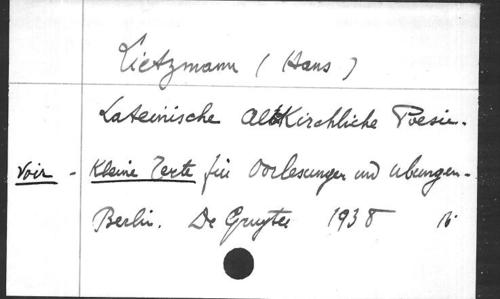 Lietzmann (Hans)
Lateinische altkirchliche Poesie.
Voir - Kleine Texte für Vorlesungen und Übungen -
Berlin. De Gruyter 1938